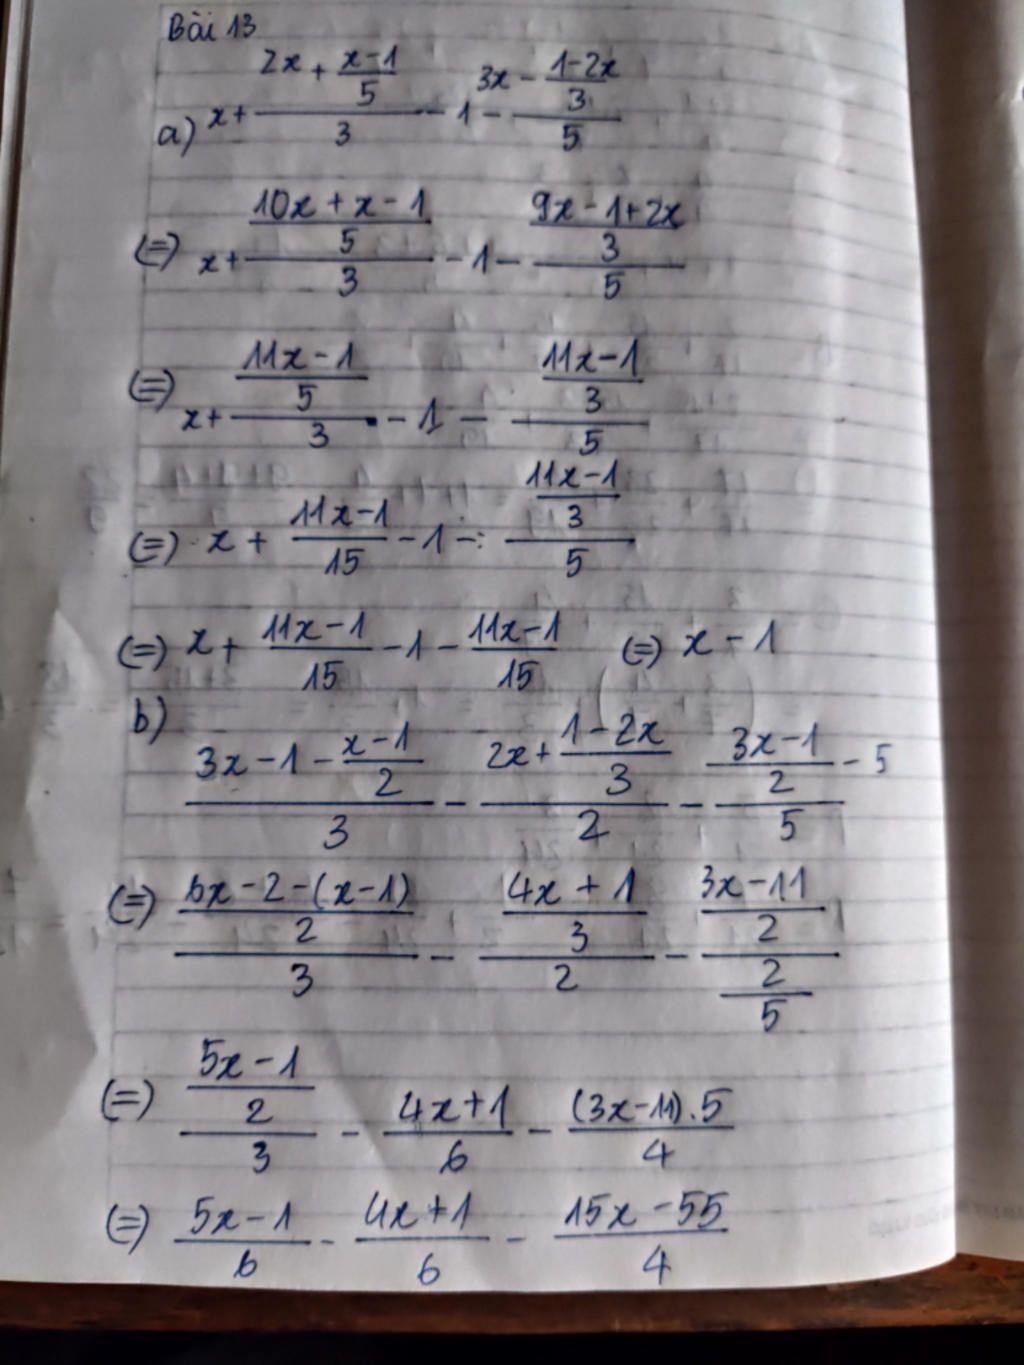 Bài 13
a) x + (2x + (x-1)/5)/3 - 1 - (3x - (1-2x)/3)/5
(=) x + ((10x + x - 1)/5)/3 - 1 - ((9x - 1 + 2x)/3)/5
(=) x + ((11x - 1)/5)/3 - 1 - ((11x - 1)/3)/5
(=) x + (11x - 1)/15 - 1 - ((11x - 1)/3)/5
(=) x + (11x - 1)/15 - 1 - (11x - 1)/15 (=) x - 1
b)
(3x - 1 - (x-1)/2)/3 - (2x + (1-2x)/3)/2 - ((3x-1)/2 - 5)/5
(=) ((6x - 2 - (x-1))/2)/3 - ((4x + 1)/3)/2 - ((3x - 11)/2)/(2/5)
(=) ((5x - 1)/2)/3 - (4x + 1)/6 - ((3x - 11).5)/4
(=) (5x - 1)/6 - (4x + 1)/6 - (15x - 55)/4